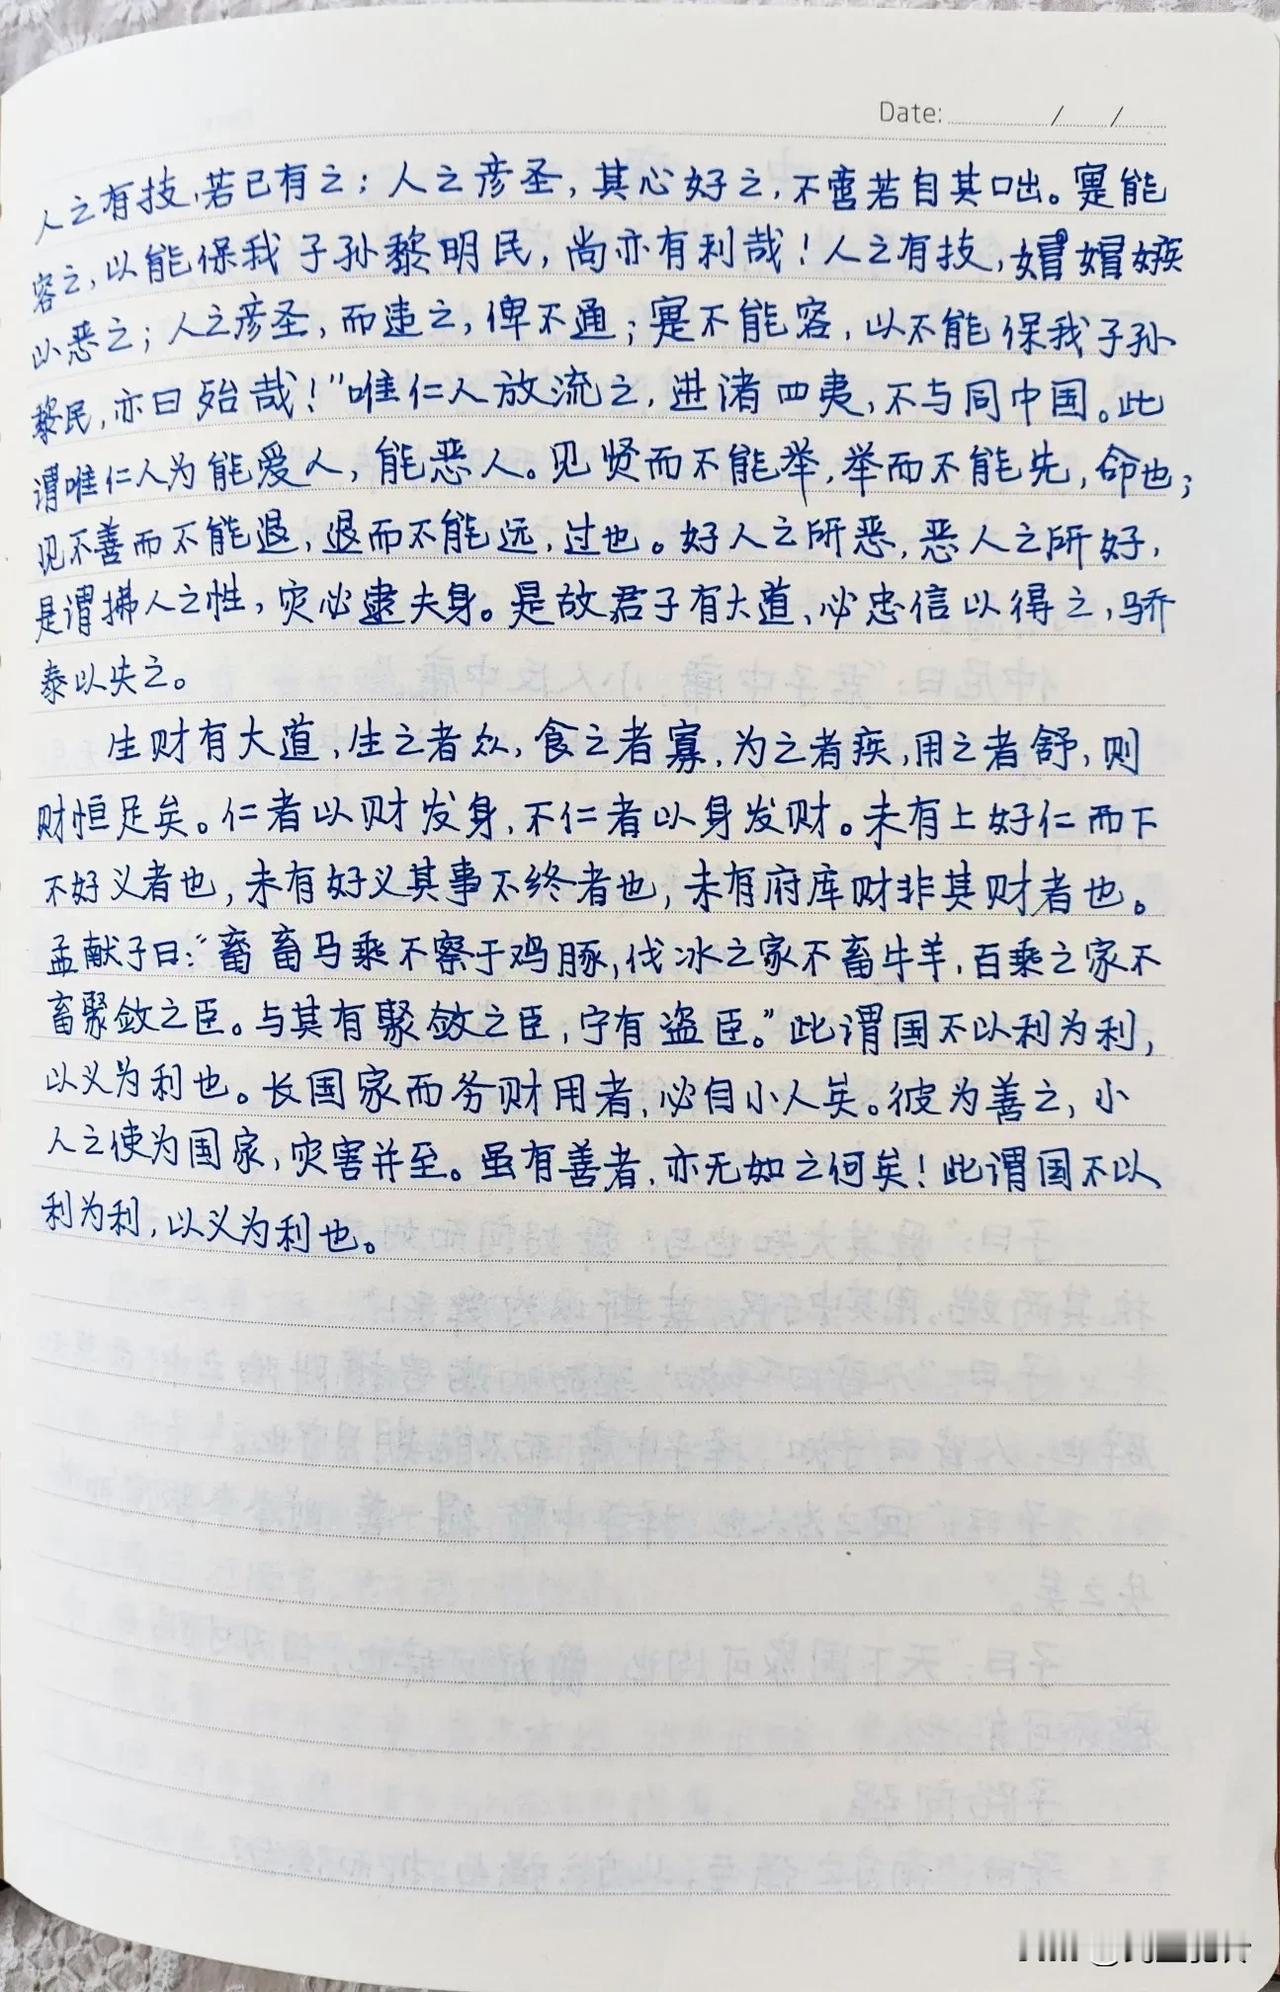 Date: / /
人之有技,若已有之;人之彦圣,其心好之,不啻若自其口出。寔能
容之,以能保我子孙黎明民,尚亦有利哉!人之有技,媢媢嫉
以恶之;人之彦圣,而违之,俾不通;寔不能容,以不能保我子孙
黎民,亦曰殆哉!"唯仁人放流之,迸诸四夷,不与同中国。此
谓唯仁人为能爱人,能恶人。见贤而不能举,举而不能先,命也;
见不善而不能退,退而不能远,过也。好人之所恶,恶人之所好,
是谓拂人之性,灾必逮夫身。是故君子有大道,必忠信以得之,骄
泰以失之。
生财有大道,生之者众,食之者寡,为之者疾,用之者舒,则
财恒足矣。仁者以财发身,不仁者以身发财。未有上好仁而下
不好义者也,未有好义其事不终者也,未有府库财非其财者也。
孟献子曰:"畜畜马乘不察于鸡豚,伐冰之家不畜牛羊,百乘之家不
畜聚敛之臣。与其有聚敛之臣,宁有盗臣。"此谓国不以利为利,
以义为利也。长国家而务财用者,必自小人矣。彼为善之,小
人之使为国家,灾害并至。虽有善者,亦无如之何矣!此谓国不以
利为利,以义为利也。